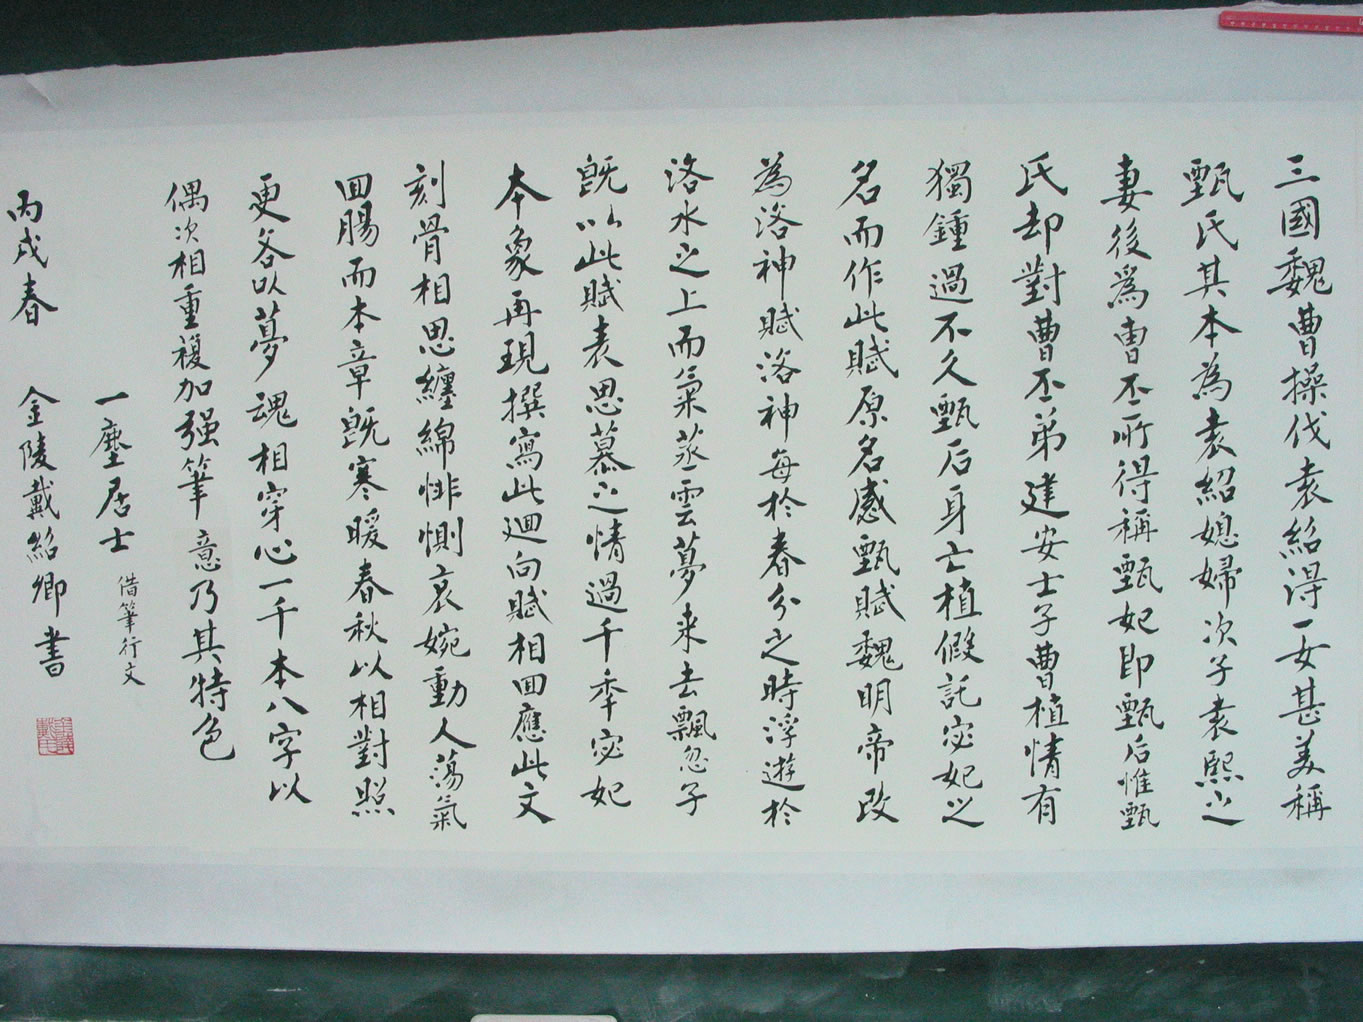 三國魏曹操伐袁紹得一女甚美稱
甄氏其本為袁紹媳婦次子袁熙之
妻後為曹丕所得稱甄妃即甄后惟甄
氏却對曹丕弟建安士子曹植情有
獨鍾過不久甄后身亡植假託宓妃之
名而作此賦原名感甄賦魏明帝改
為洛神賦洛神每於春分之時浮遊於
洛水之上而氣蒸雲夢来去飄忽子
既以此賦表思慕之情過千年宓妃
本象再現撰寫此迴向賦相回應此文
刻骨相思纏綿悱惻哀婉動人蕩氣
回腸而本章既寒暖春秋以相對照
更各以夢魂相穿心一千本八字以
偶次相重複加强筆意乃其特色
一塵居士 借筆行文
丙戌春 金陵戴紹卿書